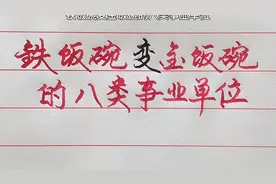 鉄饭碗变金饭碗
的八类事业单位